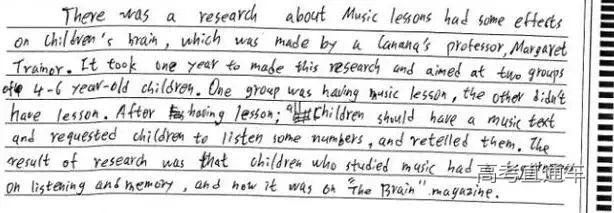 There was a research about Music lessons had some effects
on children's brain, which was made by a Canana's professor, Margaret
Trainor. It took one year to made this research and aimed at two groups
of 4-6 year-old children. One group was having music lesson, the other didn't
have lesson. After having lesson, all children should have a music text
and requested children to listen some numbers, and retelled them. The
result of research was that children who studied music had
on listening and memory, and now it was on "The Brain" magazine.
高考直通车